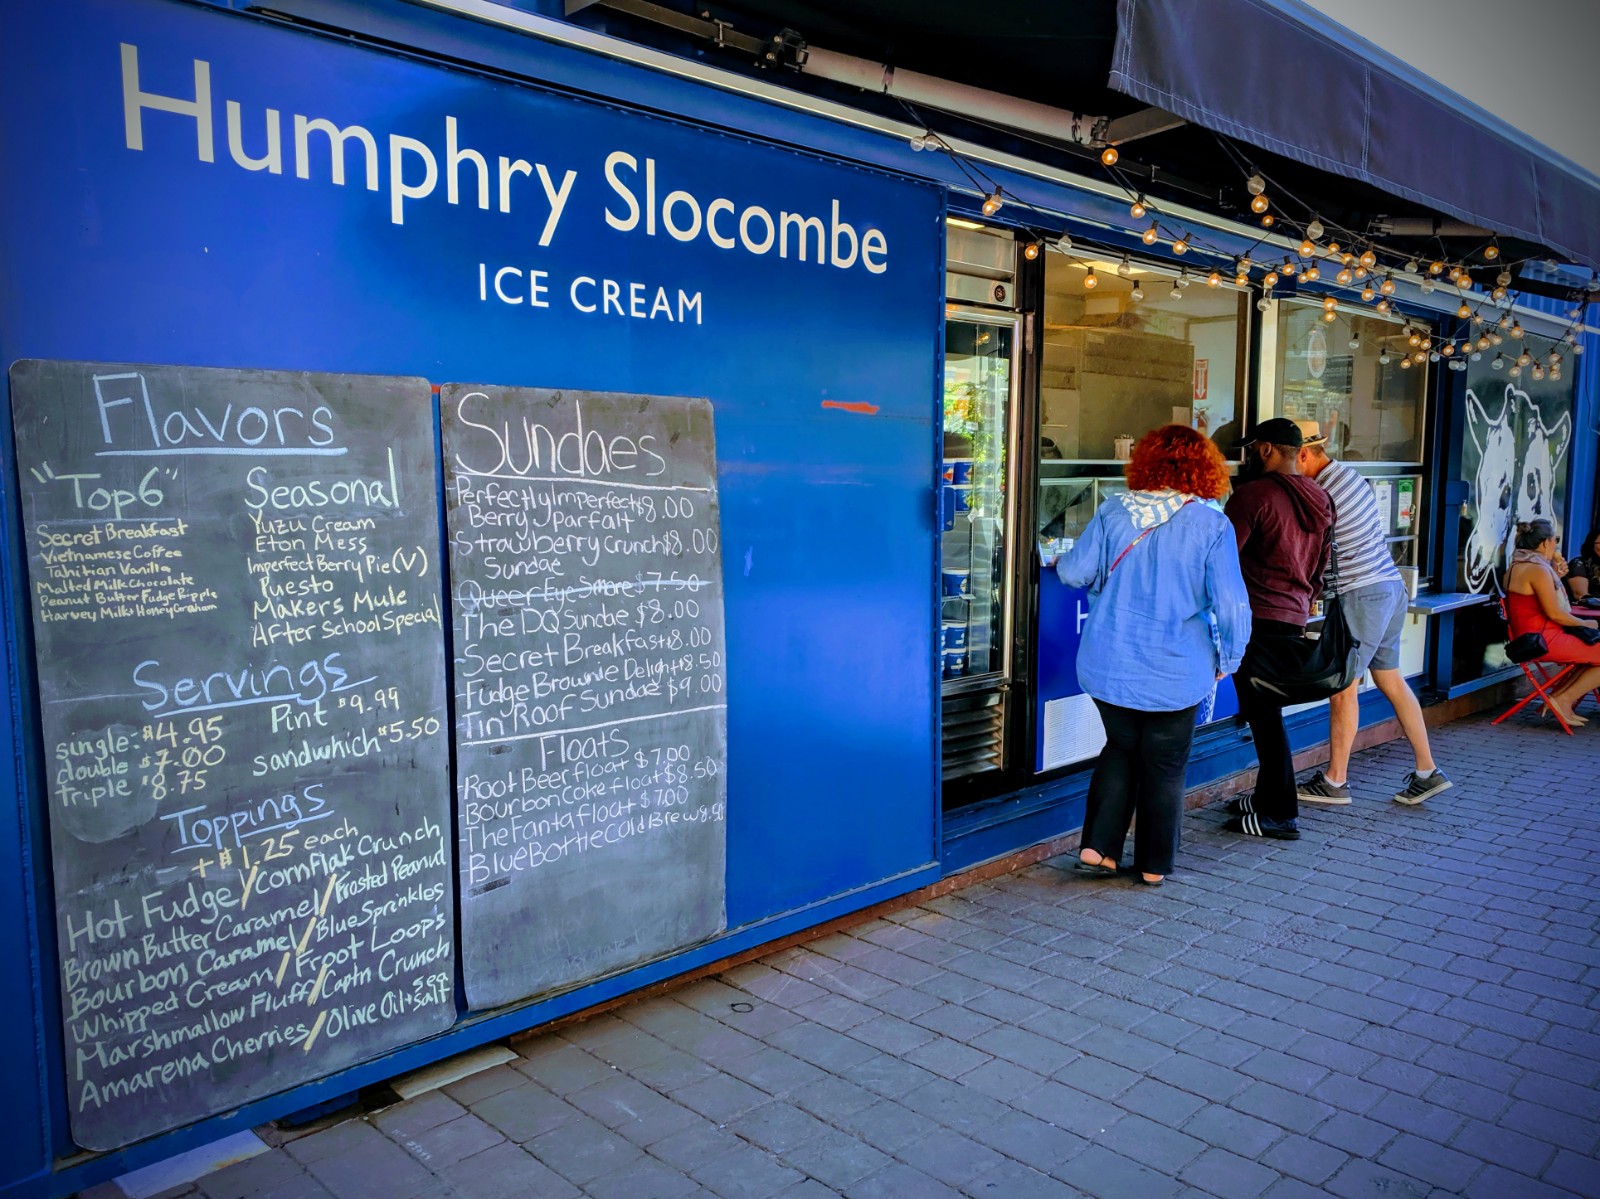 Humphry Slocombe
ICE CREAM
Flavors
"Top6"
Secret Breakfast
Vietnamese Coffee
Tahitian Vanilla
Malted Milk Chocolate
Peanut Butter Fudge Ripple
Harvey Milk + Honey Graham
Seasonal
Yuzu Cream
Eton Mess
Imperfect Berry Pie (V)
Puesto
Makers Mule
After School Special
Servings
single: $4.95
double $7.00
triple $8.75
Pint $9.99
sandwhich $5.50
Toppings
+ $1.25 each
Hot Fudge / cornflak Crunch
Brown Butter Caramel / Frosted Peanut
Bourbon Caramel / Blue Sprinkles
Whipped Cream / Froot Loops
Marshmallow Fluff / Captn Crunch
Amarena Cherries / Olive Oil + sea salt
Sundaes
Perfectly Imperfect $8.00
Berry Parfait
Strawberry Crunch $8.00
Sundae
Queer Eye Smore $7.50
The DQ Sundae $8.00
-Secret Breakfast $8.00
-Fudge Brownie Delight $8.50
Tin Roof Sundae $9.00
Floats
-Root Beer float $7.00
-Bourbon Coke float $8.50
-The Fanta float $7.00
-Blue Bottle Cold Brew 8.50